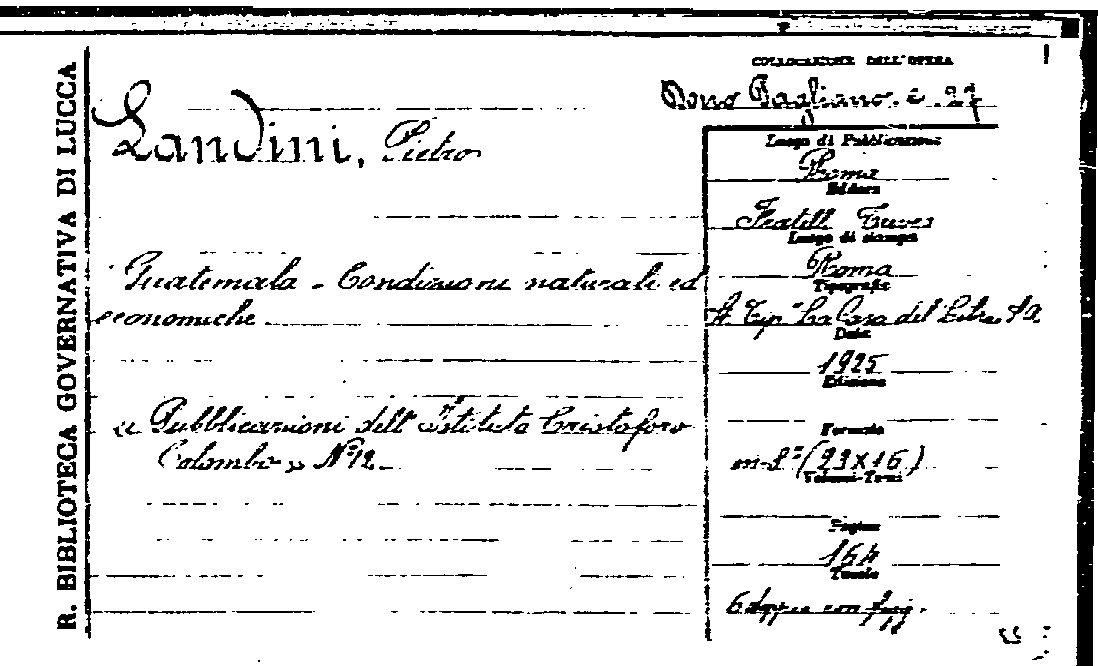 R. BIBLIOTECA GOVERNATIVA DI LUCCA
COLLOCAZIONE DELL'OPERA
Dono Pagliano. c. 27
Landini, Pietro
Luogo di Pubblicazione
Roma
Editore
Fratelli Treves
Luogo di stampa
Roma
Tipografia
Guatemala - Condizioni naturali ed
economiche
A. Tip. "La Casa del Libro,,
Data
1925
Edizione
« Pubblicazioni dell'Istituto Cristoforo
Colombo » N° 12
Formato
in-8° (23x16)
Volumi-Tomi
Pagine
164
Tavole
6 doppie con